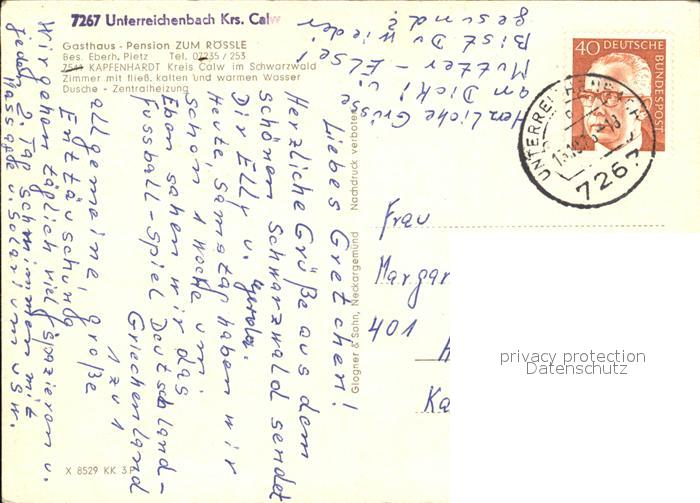 7267 Unterreichenbach Krs. Calw
Gasthaus - Pension ZUM RÖSSLE
Bes. Eberh. Pietz Tel. 07235 / 253
7541 KAPFENHARDT Kreis Calw im Schwarzwald
Zimmer mit fließ. kalten und warmen Wasser
Dusche - Zentralheizung
Liebes Gretchen!
Herzliche Grüße aus dem
schönen Schwarzwald sendet
Dir Elly u. Gerda.
Heute, Samstag haben wir
schon 1 Woche um.
Eben sahen wir das
Fussball-Spiel Deutschland-
Griechenland
1 zu 1
allgemeine, große
Enttäuschung
Wir gehen täglich viel spazieren u.
jeden 2. Tag schwimmen mit
Massage u. Solarium usw.
Herzliche Grüsse
an Dich! u.
Mutter - Else!
Bist Du wieder
gesund?
Glogner & Sohn, Neckargemünd Nachdruck verboten
X 8529 KK 3 F
40 DEUTSCHE BUNDESPOST
UNTERREICHENBACH
7267
Frau
Margar
401
Ka
privacy protection
Datenschutz